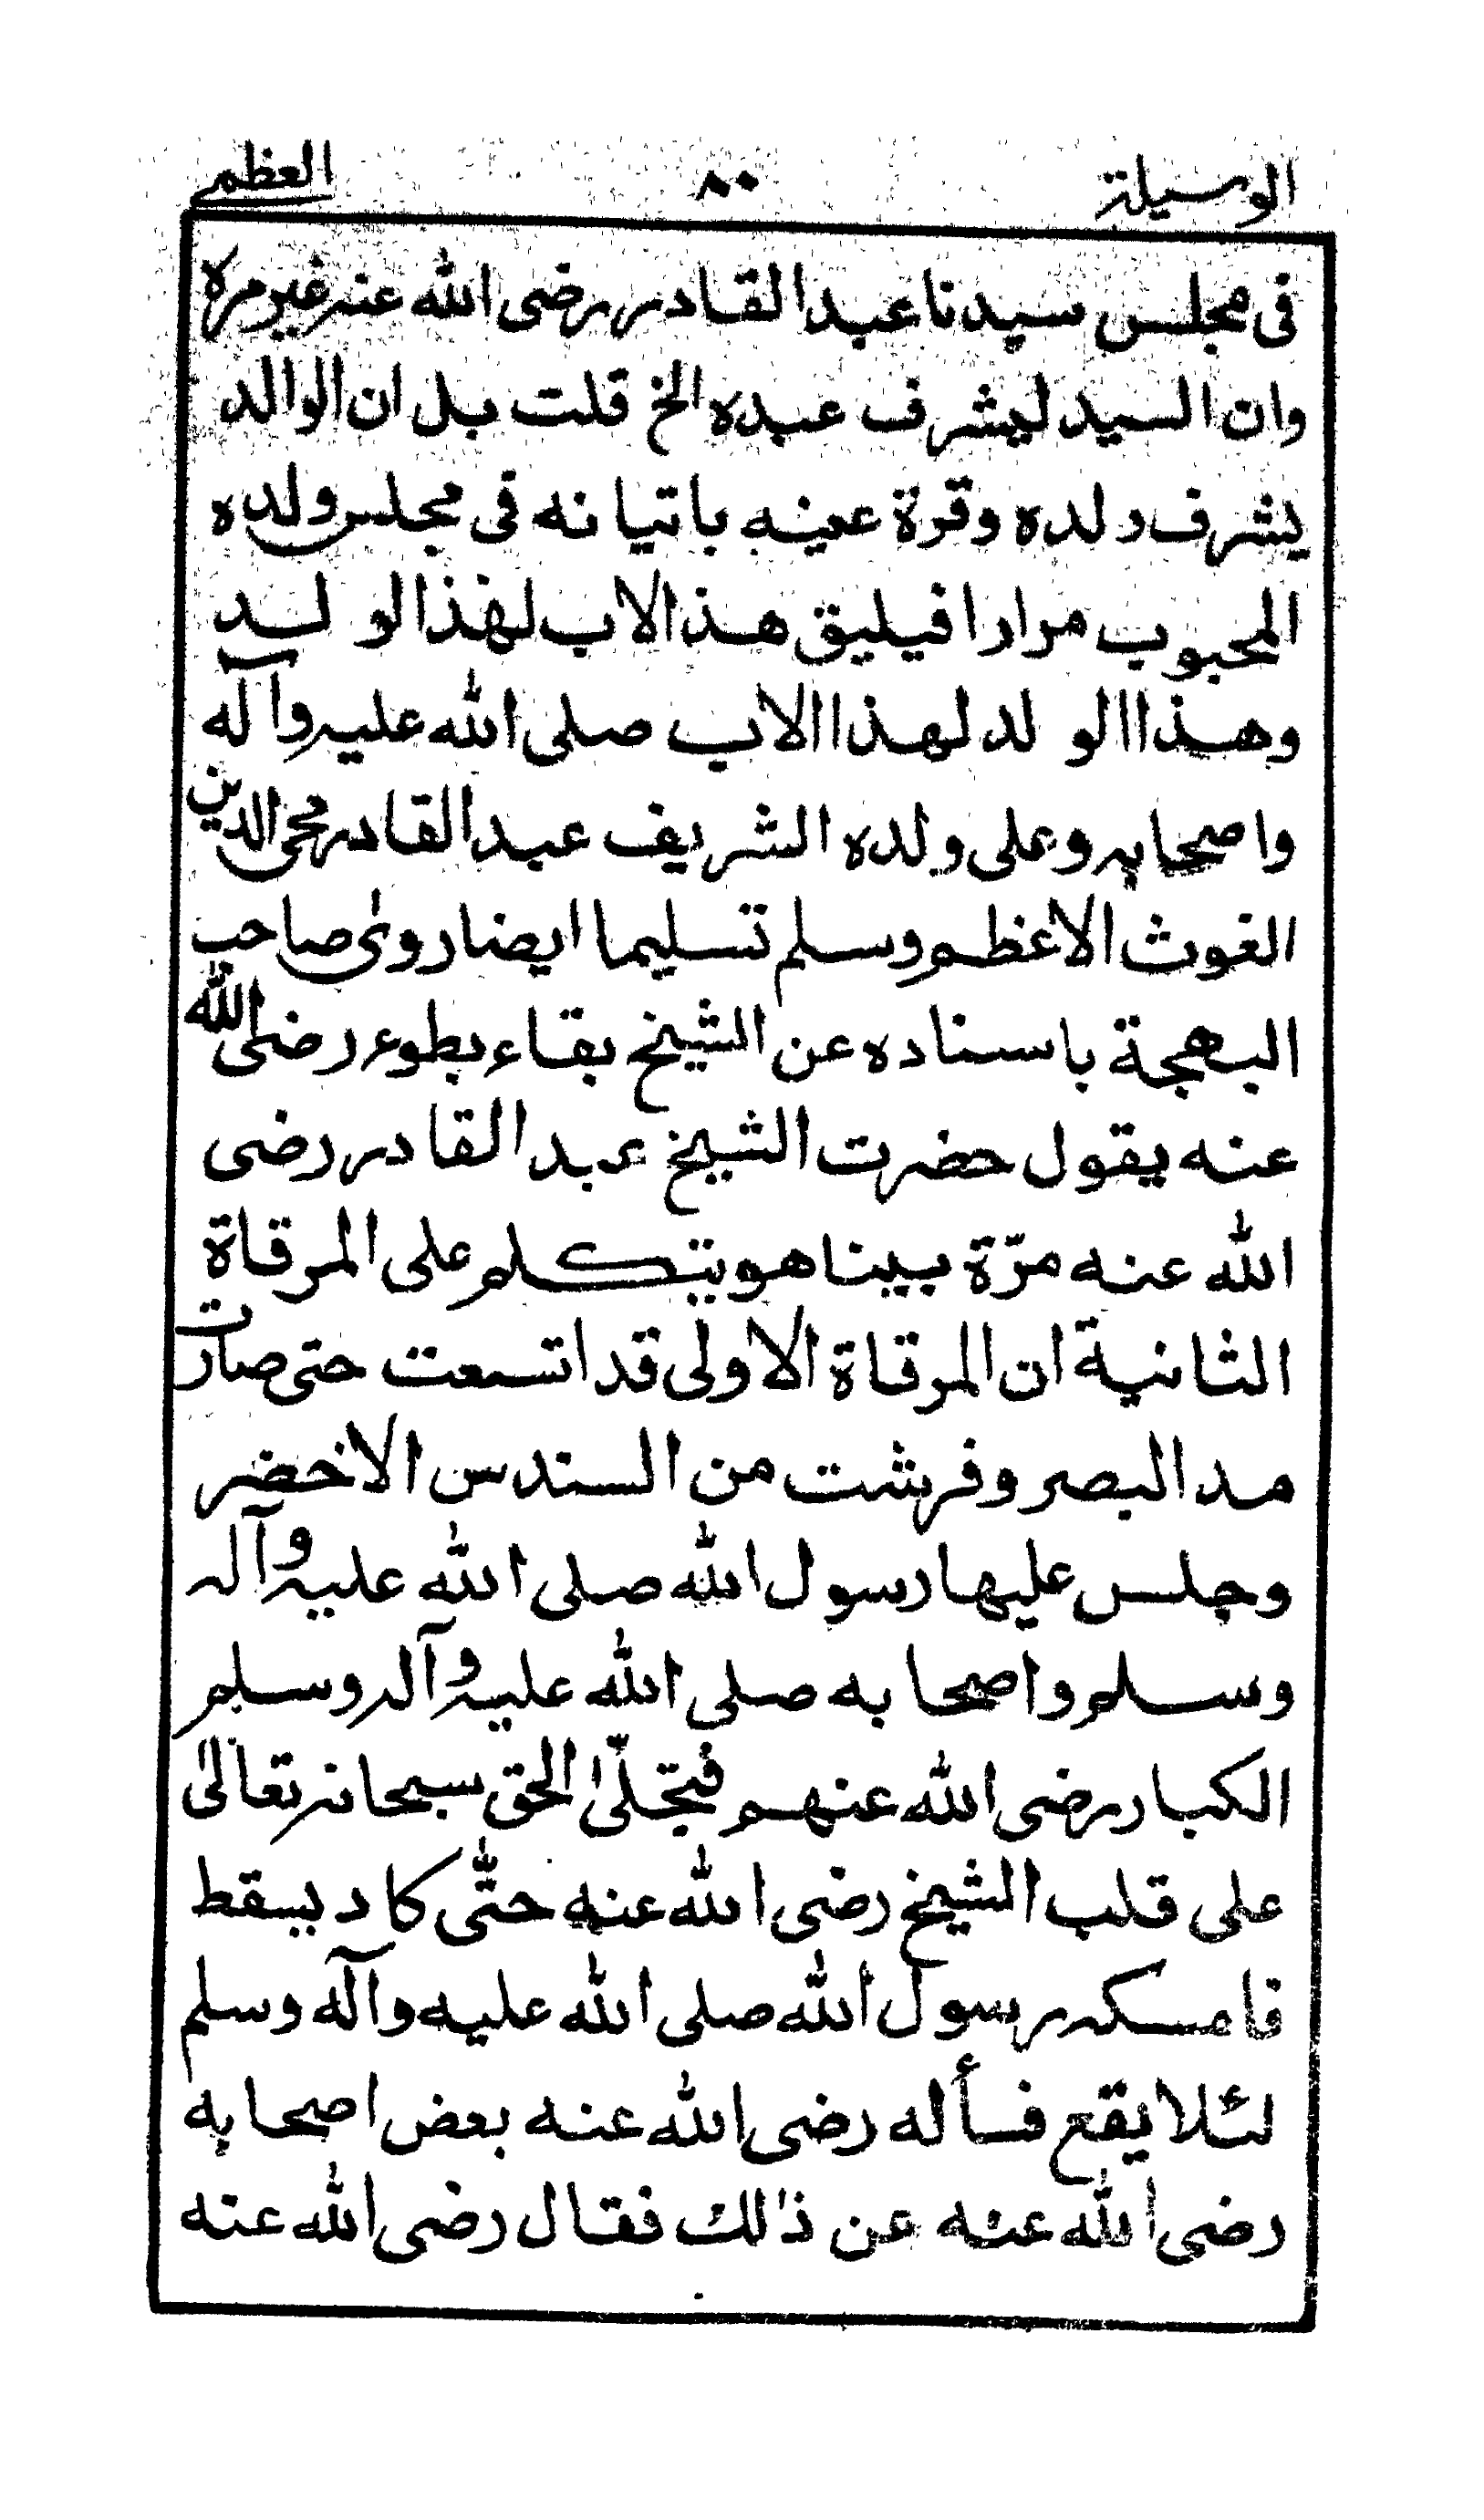 الوسيلة ٨٠ العظمى
فى مجلس سيدنا عبد القادر رضى الله عنه غير مرة
وان السيد ليشرف عبده الخ قلت بل ان الوالد
يشرف ولده وقرة عينه باتيانه فى مجلس ولده
المحبوب مرارا فيليق هذ الاب لهذ الولد
وهذا الولد لهذا الاب صلى الله عليه وآله
واصحابه وعلى ولده الشريف عبد القادر محى الدين
الغوث الاعظم وسلم تسليما ايضا روى صاحب
البهجة باسناده عن الشيخ بقاء بطوء رضى الله
عنه يقول حضرت الشيخ عبد القادر رضى
الله عنه مرّة بينا هو يتكلم على المرقاة
الثانية ان المرقاة الاولى قد اتسعت حتى صارت
مد البصر وفرشت من السندس الاخضر
وجلس عليها رسول الله صلى الله عليه وآله
وسلم واصحابه صلى الله عليه وآله وسلم
الكبار رضى الله عنهم فتجلّى الحق سبحانه تعالىٰ
على قلب الشيخ رضى الله عنه حتّى كاد يسقط
فامسكه رسول الله صلى الله عليه وآله وسلم
لئلا يقع فسأله رضى الله عنه بعض اصحابه
رضى الله عنه عن ذٰلك فقال رضى الله عنه